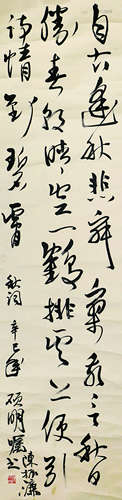 自古逢秋悲寂寥我言秋日
胜春朝晴空一鹤排云上便引
诗情到碧霄
秋词 辛巳年
硕明嘱书 陈振濂